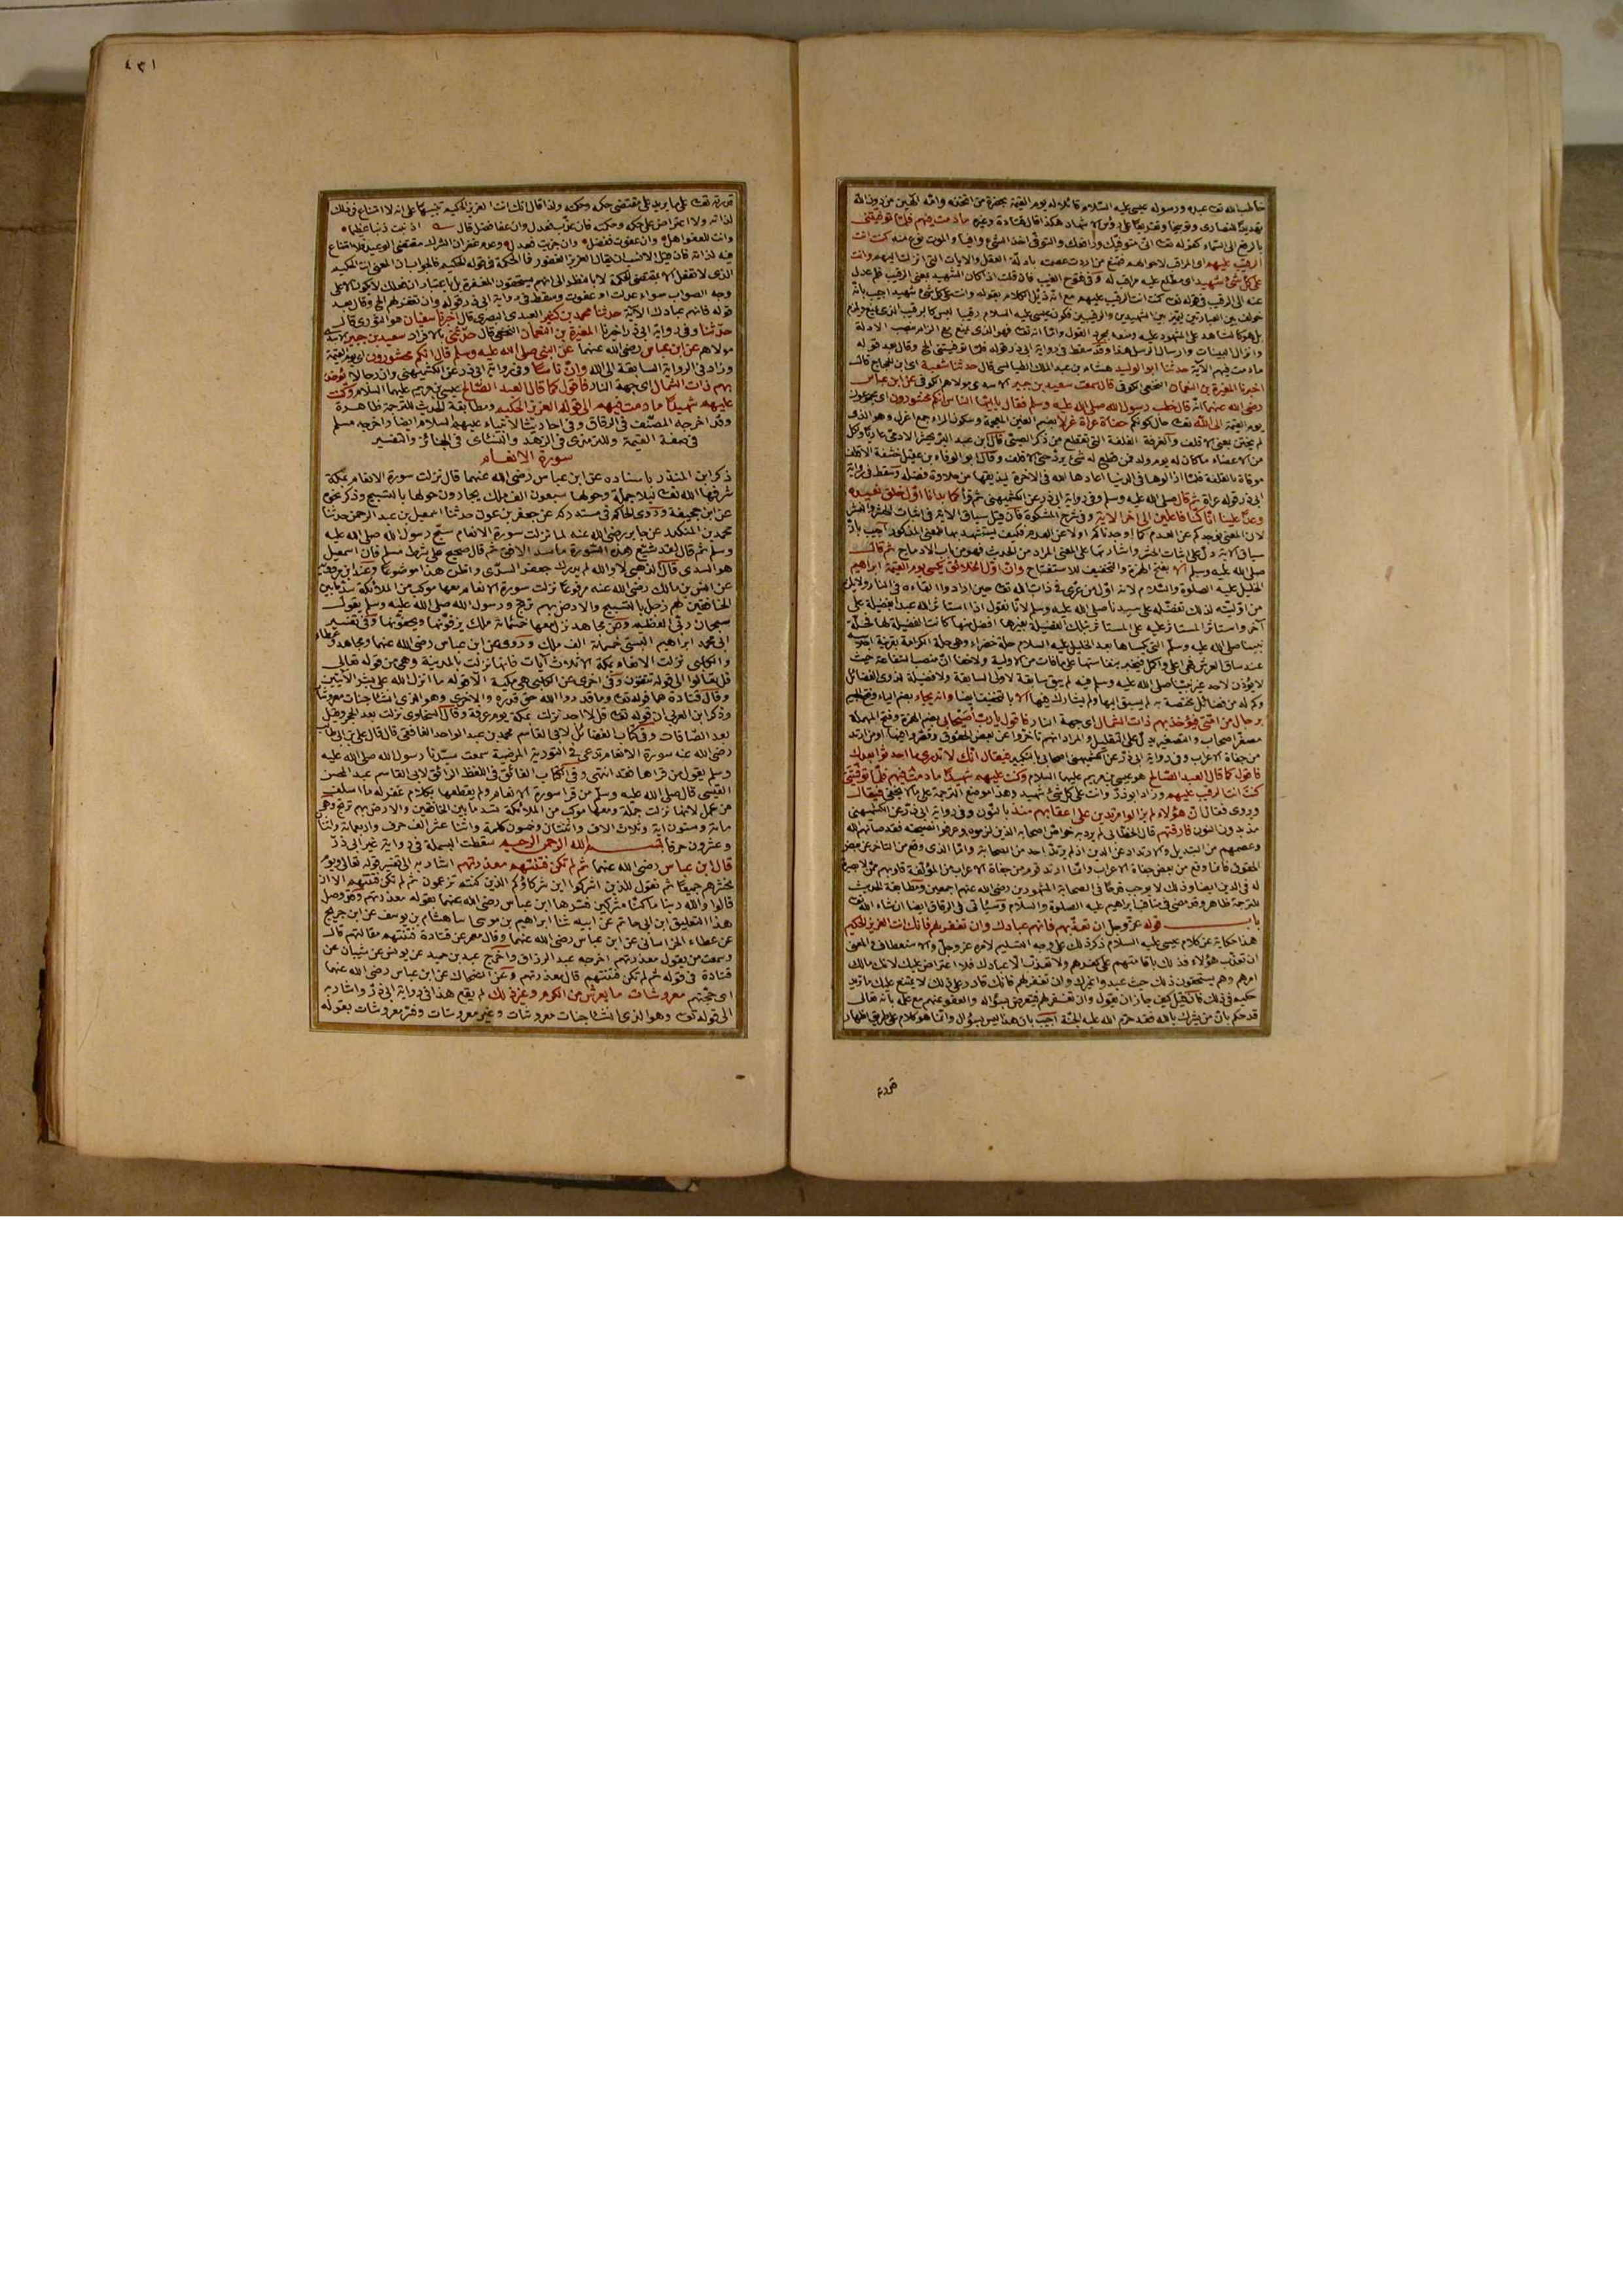 خاطب الله تعـ عبده ورسوله عيسى عليه السلام قائلا له يوم القيمة بحضرة من اتخذه وامّه الٓهين من دون الله
تهديدًا للنصارى وتوبيخا وتقريعًا على رؤس الاشهاد هكذا قال قتادة وغيره ما دمت فيهم فلمّا توفيتنى
بالرفع الى السماء كقوله تعـ انّى متوفيك ورافعك والتوفى اخذ الشئ وافيا والموت نوع منه كنت انت
الرقيب عليهم اى المراقب لاحوالهم فتمنع من اردت عصمته بادلّة العقل والايات التى انزلت اليهم وانت
على كل شئ شهيد اى مطلع عليه مراقب له وفى فتوح الغيب فان قلت اذا كان الشهيد بمعنى الرقيب فلم عدل
عنه الى الرقيب فى قوله تعـ كنت انت الرقيب عليهم مع انّه ذيّل الكلام بقوله وانت على كل شئ شهيد اجيب بانّه
خولف بين العبارتين ليميّز بين الشهيدين والرقيبين فكون عيسى عليه السلام رقيبا ليس كالرقيب الذى يمنع ويلزم
بل هو كالشاهد على المشهود عليه ومنعه بمجرد القول وانّه تعـ فهو الذى يمنع منع الزام بنصب الادلة
وانزال البينات وارسال الرسل هذا وقد سقط فى رواية ابى ذر قوله فلمّا توفيتنى الخ وقال بعد قوله
ما دمت فيهم الآية حدثنا ابو الوليد هشام بن عبد الملك الطيالسى قال حدثنا شعبة اى ابن الحجاج قال
اخبرنا المغيرة بن النعمان النخعى الكوفى قال سمعت سعيد بن جبير الاسدى مولاهم الكوفى عن ابن عباس
رضى الله عنهما انّه قال خطب رسول الله صلى الله عليه وسلم فقال يا ايّها الناس انكم محشورون اى مجموعون
يوم القيمة الى الله تعـ حال كونكم حفاة عراة غرلا بضم الغين المعجمة وسكون الراء جمع اغرل وهو الذى
لم يختن بمعنى الاقلف والغرفة القلفة التى تقطع من ذكر الصبى قال ابن عبد البر يحشر الادمى عاريا ولكل
من الاعضاء ما كان له يوم ولد فمن قطع له شئ يردّ حتى الاقلف وقال ابو الوفاء بن عقيل حشفة الاقلف
موقاة بالقلفة فلمّا ازالوها فى الدنيا اعادها الله فى الاخرة ليذيقها من حلاوة فضله وسقط فى رواية
ابى ذر قوله عراة ثم قال صلى الله عليه وسلم وفى رواية ابى ذر عن الكشميهنى ثم قرأ كما بدأنا اوّل خلق نعيده
وعدًا علينا انّا كنا فاعلين الى اخر الاية وفى شرح المشكوة فان قيل سياق الاية فى اثبات الحشر والنشر
لان المعنى نوجدكم عن العدم كما اوجدناكم اولا عن العدم فكيف يستشهد بها للمعنى المذكور اجيب بانّ
سياق الاية دل على اثبات الحشر واشارتها على المعنى المراد من الحديث فهو من باب الادماج ثم قال
صلى الله عليه وسلم الا بفتح الهمزة والتخفيف للاستفتاح وانّ اوّل الخلائق يكسى يوم القيمة ابراهيم
الخليل عليه الصلوة والسلام لانه اوّل من عرّى فى ذات الله تعـ حين ارادوا القاءه فى النار ولا يلزم
من اوليّته لذلك تفضيله على سيدنا صلى الله عليه وسلم لانا نقول اذا استأثر الله عبدا بفضيلة على
آخر واستأثر المستأثر عليه على المستأثر بتلك الفضيلة بغيرها افضل منها كانت الفضيلة لها فحلّة
نبينا صلى الله عليه وسلم التى يكساها بعد الخليل عليه السلام حلة خضراء وهى حلة الكرامة بقرينة اجلاسه
عند ساق العرش هى اعلى واكمل فتجبر بنفاستها على ما فات من الاولية ولا خفاء انّ منصب الشفاعة حيث
لا يؤذن لاحد غير نبينا صلى الله عليه وسلم فيه لم يبق سابقة لاولى السابقة ولا فضيلة لذوى الفضائل
وكم له من فضائل مختصة به لم يسبق اليها ولم يشارك فيها الا بالتخفيف ايضا وانه يجاء بضم الياء وفتح الجيم
برجال من امّتى فيؤخذ بهم ذات الشمال اى جهة النار فاقول يا رب اصيحابى بضم الهمزة وفتح المهملة
مصغر اصحاب والتصغير يدلّ على التقليل والمراد انهم تأخروا عن بعض الحقوق وقصروا فيها او من ارتد
من جفاة الاعراب وفى رواية ابى ذر عن الكشميهنى اصحابى بالتكبير فيقال انّك لا تدرى ما احدثوا بعدك
فاقول كما قال العبد الصالح هو عيسى بن مريم عليهما السلام وكنت عليهم شهيدا ما دمت فيهم فلمّا توفيتنى
كنت انت الرقيب عليهم وزاد ابو ذر وانت على كل شئ شهيد وهذا موضع الترجمة على ما لا يخفى فيقال
وروى فقال انّ هؤلاء لم يزالوا مرتدين على اعقابهم منذ بالنون وفى رواية ابى ذر عن الكشميهنى
مذ بدون النون فارقتهم قال الخطابى لم يرد به خواص اصحابه الذين لزموه وعرفوا بصحبته فقد صانهم الله
وعصمهم من التبديل والارتداد عن الدين اذ لم يرتدّ احد من الصحابة وامّا الذى وقع من التاخر عن بعض
الحقوق فانما وقع من بعض جفاة الاعراب وانما ارتد قوم من جفاة الاعراب من المؤلفة قلوبهم ممّن لا بصيرة
له فى الدين ايضا وذلك لا يوجب قدحًا فى الصحابة المشهورين رضى الله عنهم اجمعين ومطابقة الحديث
للترجمة ظاهرة وقد مضى فى مناقب ابراهيم عليه الصلوة والسلام وسيأتى فى الرقاق ايضا ان شاء الله تعـ
باب قوله عزّ وجل ان تعذّبهم فانهم عبادك وان تغفر لهم فانك انت العزيز الحكيم
هذا حكاية عن كلام عيسى عليه السلام ذكر ذلك على وجه التسليم لامره عز وجل والاستعطاف فى المعنى
ان تعذب هؤلاء فذلك باقامتهم على كفرهم ولا تعذّب الّا عبادك فلا اعتراض عليك لانك مالك
امرهم وهم يستحقون ذلك حيث عبدوا غيرك وان تغفر لهم فانّك قادر على ذلك لا يمتنع عليك ما تريد
حكيم فى ذلك فان قيل كيف جاز ان يقول وان تغفر لهم فيتعرض بسؤاله والعفو عنهم مع علمه بانه تعالى
قد حكم بانّ من يشرك بالله فقد حرّم الله عليه الجنة اجيب بان هذا ليس بسؤال وانّما هو كلام على طريق اظهار
قدرته
٤٣١
قدرته تعـ على ما يريد على مقتضى حكمه وحكمته ولذا قال انك انت العزيز الحكيم تنبيها على انه لا امتناع فى ذلك
لذاته ولا اعتراض على حكمه وحكمته فان عذّب فعدل وان عفا ففضل قال اذنبت ذنبا عظيما
وانت للعفو اهل وان عفوت ففضل وان جزيت فعدل وعدم غفران الشرك مقتضى الوعيد فلا امتناع
فيه لذاته فان قيل الانسب ان يقال العزيز الغفور فما الحكمة فى قوله الحكيم فالجواب ان المعنى انت الحكيم
الذى لا تفعل الا بمقتضى الحكمة لا بالنظر الى انهم يستحقون المغفرة بل باعتبار ان فعلك لا يكون الا على
وجه الصواب سواء عدلت او عفوت وسقط فى رواية ابى ذر قوله وان تغفر لهم الخ وقال بعد
قوله فانهم عبادك الآية حدثنا محمد بن كثير العبدى البصرى قال اخبرنا سفيان هو الثورى قال
حدّثنا وفى رواية ابى ذر اخبرنا المغيرة بن النعمان النخعى قال حدّثنى بالافراد سعيد بن جبير الاسدى
مولاهم عن ابن عباس رضى الله عنهما عن النبى صلى الله عليه وسلم قال انكم محشورون اى يوم القيمة
وزاد فى الرواية السابقة الى الله وانّ ناسًا وفى رواية ابى ذر عن الكشميهنى وان رجالا يؤخذ
بهم ذات الشمال اى جهة النار فاقول كما قال العبد الصّالح عيسى بن مريم عليهما السلام وكنت
عليهم شهيدًا ما دمت فيهم الى قوله العزيز الحكيم ومطابقة الحديث للترجمة ظاهرة
وقد اخرجه المصنّف فى الرقاق وفى احاديث الانبياء عليهم السلام ايضا واخرجه مسلم
فى صفة القيمة والترمذى فى الزهد والنسائى فى الجنائز والتفسير
سورة الانعام
ذكر ابن المنذر باسناده عن ابن عباس رضى الله عنهما قال نزلت سورة الانعام بمكة
شرفها الله تعـ ليلا جملة وحولها سبعون الف ملك يجارون حولها بالتسبيح وذكر نحوه
عن ابى جحيفة وروى الحاكم فى مستدركه عن جعفر بن عون حدثنا اسمعيل بن عبد الرحمن حدثنا
محمد بن المنكدر عن جابر رضى الله عنه لما نزلت سورة الانعام سبّح رسول الله صلى الله عليه
وسلم ثم قال لقد شيّع هذه السّورة ما سدّ الافق ثم قال صحيح على شرط مسلم فان اسمعيل
هو السدى قال الذهبى لا والله لم يدرك جعفر السدّى واظن هذا موضوعا وعند ابن مردويه
عن انس بن مالك رضى الله عنه مرفوعًا نزلت سورة الانعام معها موكب من الملائكة سدّ ما بين
الخافقين لهم زجل بالتسبيح والارض بهم ترتج ورسول الله صلى الله عليه وسلم يقول
سبحان ربّى العظيم وعن مجاهد نزل معها خمسمائة ملك يزفّونها ويحفّونها وفى تفسير
ابى محمد ابراهيم البستى خمسمائة الف ملك وروى عن ابن عباس رضى الله عنهما ومجاهد وعطاء
والكلبى نزلت الانعام بمكة الا ثلاث آيات فانها نزلت بالمدينة وهى من قوله تعالى
قل تعالوا الى قوله تتقون وفى اخرى عن الكلبى هى مكية الا قوله ما انزل الله على بشر الآيتين
وقال قتادة هما قوله تعـ وما قدروا الله حق قدره والاخرى وهو الذى انشأ جنات معروشات
وذكر ابن العربى ان قوله تعـ قل لا اجد نزلت بمكة يوم عرفة وقال السخاوى نزلت بعد الحجر وقبل
بعد الصّافات وفى كتاب الفضائل لابى القاسم محمد بن عبد الواحد الغافقى قال قال على بن ابى طالب
رضى الله عنه سورة الانعام تدعى فى التورية المرضية سمعت سيّدنا رسول الله صلى الله عليه
وسلم يقول من قراها فقد انتهى وفى كتاب الفائق فى اللفظ الرائق لابى القاسم عبد المحسن
القيسى قال صلى الله عليه وسلّم من قرا سورة الانعام ولم يقطعها بكلام غفر له ما اسلف
من عمل لانها نزلت جملة ومعها موكب من الملائكة سد ما بين الخافقين والارض بهم ترتج وهى
مائة وستون اية وثلاث الاف واثنتان وخمسون كلمة واثنا عشر الف حرف واربعمائة واثنا
وعشرون حرفا بسم الله الرحمن الرحيم سقطت البسملة فى رواية غير ابى ذرّ
قال ابن عباس رضى الله عنهما ثم لم تكن فتنتهم معذرتهم اشار به الى تفسير قوله تعالى ويوم
نحشرهم جميعًا ثم نقول للذين اشركوا اين شركاؤكم الذين كنتم تزعمون ثم لم تكن فتنتهم الا ان
قالوا والله ربنا ما كنّا مشركين فسّرها ابن عباس رضى الله عنهما بقوله معذرتهم وقد وصل
هذا التعليق ابن ابى حاتم عن ابيه ثنا ابراهيم بن موسى انا هشام بن يوسف عن ابن جريج
عن عطاء الخراسانى عن ابن عباس رضى الله عنهما وقال معمر عن قتادة فتنتهم مقالتهم قال
وسمعت من يقول معذرتهم اخرجه عبد الرزاق واخرج عبد بن حميد عن يونس عن شيبان عن
قتادة فى قوله ثم لم تكن فتنتهم قال معذرتهم وعن الضحاك عن ابن عباس رضى الله عنهما
اى حجّتهم معروشات ما يعرش من الكرم وغير ذلك لم يقع هذا فى رواية ابى ذرّ واشار به
الى قوله تعـ وهو الذى انشأ جنات معروشات وغير معروشات وفسّر معروشات بقوله